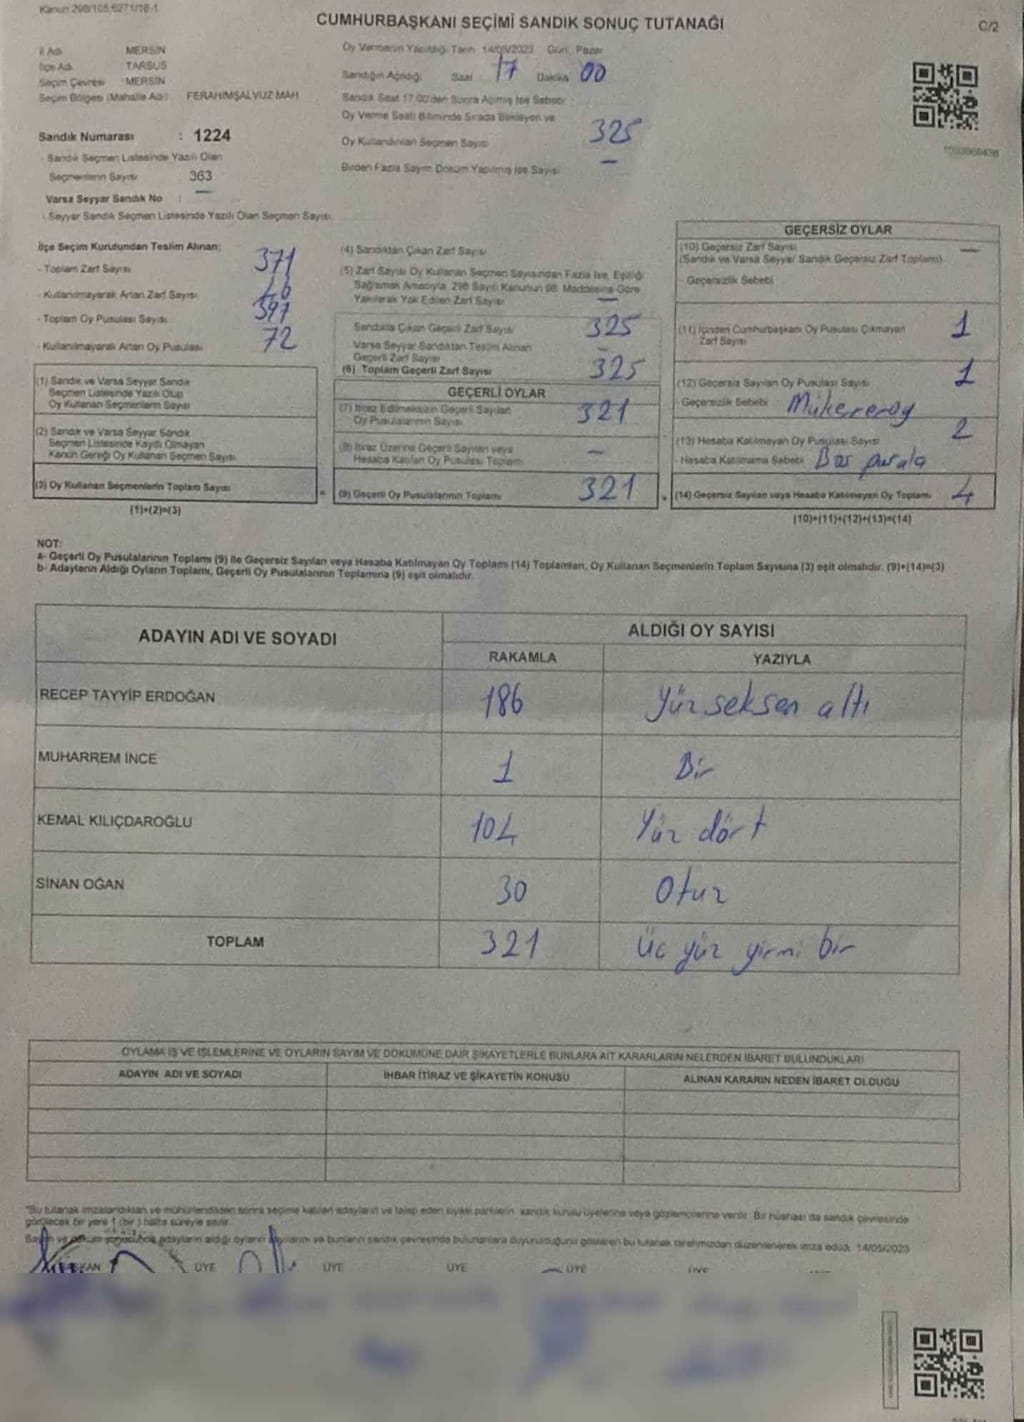 Kanun:298/105,6271/18-1
CUMHURBAŞKANI SEÇİMİ SANDIK SONUÇ TUTANAĞI
C/2
İl Adı MERSİN
İlçe Adı TARSUS
Seçim Çevresi MERSİN
Seçim Bölgesi (Mahalle Adı) FERAHİMŞALVUZ MAH
Oy Vermenin Yapıldığı Tarih 14/05/2023 Gün Pazar
Sandığın Açıldığı Saat 17 Dakika 00
Sandık Saat 17:00'den Sonra Açılmış İse Sebebi
Oy Verme Saati Bitiminde Sırada Bekleyen ve
Oy Kullandırılan Seçmen Sayısı 325
Birden Fazla Sayım Döküm Yapılmış İse Sayısı —
Sandık Numarası : 1224
- Sandık Seçmen Listesinde Yazılı Olan
Seçmenlerin Sayısı 363
Varsa Seyyar Sandık No : —
- Seyyar Sandık Seçmen Listesinde Yazılı Olan Seçmen Sayısı
İlçe Seçim Kurulundan Teslim Alınan:
- Toplam Zarf Sayısı 371
- Kullanılmayarak Artan Zarf Sayısı
- Toplam Oy Pusulası Sayısı 397
- Kullanılmayarak Artan Oy Pusulası 72
(1) Sandık ve Varsa Seyyar Sandık
Seçmen Listesinde Yazılı Olup
Oy Kullanan Seçmenlerin Sayısı
(2) Sandık ve Varsa Seyyar Sandık
Seçmen Listesinde Kayıtlı Olmayan
Kanun Gereği Oy Kullanan Seçmen Sayısı
(3) Oy Kullanan Seçmenlerin Toplam Sayısı =
(1)+(2)=(3)
(4) Sandıktan Çıkan Zarf Sayısı
(5) Zarf Sayısı Oy Kullanan Seçmen Sayısından Fazla İse, Eşitliği
Sağlamak Amacıyla, 298 Sayılı Kanunun 98. Maddesine Göre
Yakılarak Yok Edilen Zarf Sayısı —
Sandıkta Çıkan Geçerli Zarf Sayısı 325
Varsa Seyyar Sandıktan Teslim Alınan
Geçerli Zarf Sayısı —
(6) Toplam Geçerli Zarf Sayısı 325
GEÇERLİ OYLAR
(7) İtiraz Edilmeksizin Geçerli Sayılan
Oy Pusulalarının Sayısı 321
(8) İtiraz Üzerine Geçerli Sayılan veya
Hesaba Katılan Oy Pusulası Toplamı —
(9) Geçerli Oy Pusulalarının Toplamı 321 +
GEÇERSİZ OYLAR
(10) Geçersiz Zarf Sayısı —
(Sandık ve Varsa Seyyar Sandık Geçersiz Zarf Toplamı)
- Geçersizlik Sebebi
(11) İçinden Cumhurbaşkanı Oy Pusulası Çıkmayan
Zarf Sayısı 1
(12) Geçersiz Sayılan Oy Pusulası Sayısı 1
- Geçersizlik Sebebi Mükereroy
(13) Hesaba Katılmayan Oy Pusulası Sayısı 2
- Hesaba Katılmama Sebebi Bos pusula
(14) Geçersiz Sayılan veya Hesaba Katılmayan Oy Toplamı 4
(10)+(11)+(12)+(13)=(14)
NOT:
a- Geçerli Oy Pusulalarının Toplamı (9) ile Geçersiz Sayılan veya Hesaba Katılmayan Oy Toplamı (14) Toplamları, Oy Kullanan Seçmenlerin Toplam Sayısına (3) eşit olmalıdır. (9)+(14)=(3)
b- Adayların Aldığı Oyların Toplamı, Geçerli Oy Pusulalarının Toplamına (9) eşit olmalıdır.
ADAYIN ADI VE SOYADI
ALDIĞI OY SAYISI
RAKAMLA YAZIYLA
RECEP TAYYİP ERDOĞAN 186 Yüz seksen altı
MUHARREM İNCE 1 Bir
KEMAL KILIÇDAROĞLU 104 Yüz dört
SİNAN OĞAN 30 Otuz
TOPLAM 321 Üc yüz yirmi bir
OYLAMA İŞ VE İŞLEMLERİNE VE OYLARIN SAYIM VE DÖKÜMÜNE DAİR ŞİKAYETLERLE BUNLARA AİT KARARLARIN NELERDEN İBARET BULUNDUKLARI
ADAYIN ADI VE SOYADI İHBAR İTİRAZ VE ŞİKAYETİN KONUSU ALINAN KARARIN NEDEN İBARET OLDUĞU
*Bu tutanak imzalandıktan ve mühürlendikten sonra seçime katılan adayların ve talep eden siyasi partilerin sandık kurulu üyelerine veya gözlemcilerine verilir. Bir nüshası da sandık çevresinde
görülecek bir yere 1 (bir) hafta süreyle asılır.
Sayım ve döküm sonucunda adayların aldığı oyların sayılarını ve bunların sandık çevresinde bulunanlara duyurulduğunu gösteren bu tutanak tarafımızdan düzenlenerek imza edildi. 14/05/2023
BAŞKAN ÜYE ÜYE ÜYE ÜYE ÜYE